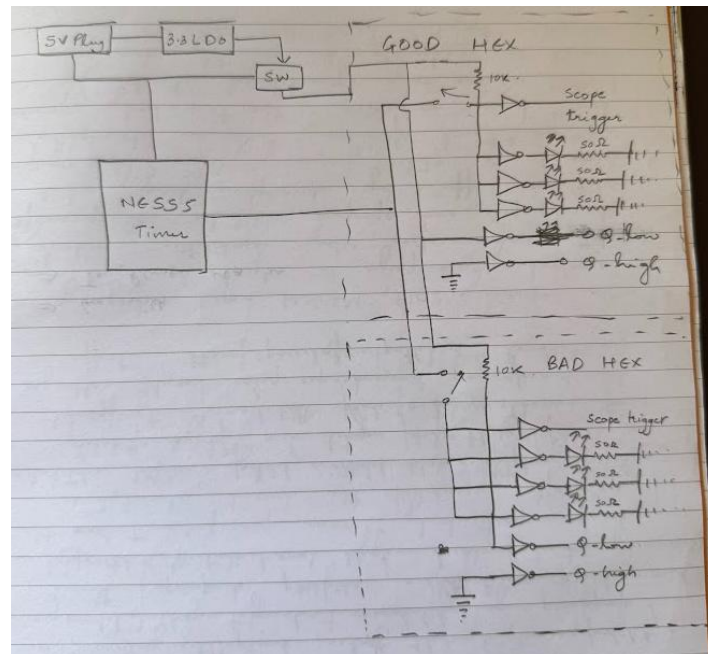 5V Plug
3.3 LDO
SW
NE555
Timer
GOOD HEX
10K
Scope
trigger
50Ω
50Ω
50Ω
Q-low
Q-high
BAD HEX
10K
Scope trigger
50Ω
50Ω
50Ω
Q-low
Q-high